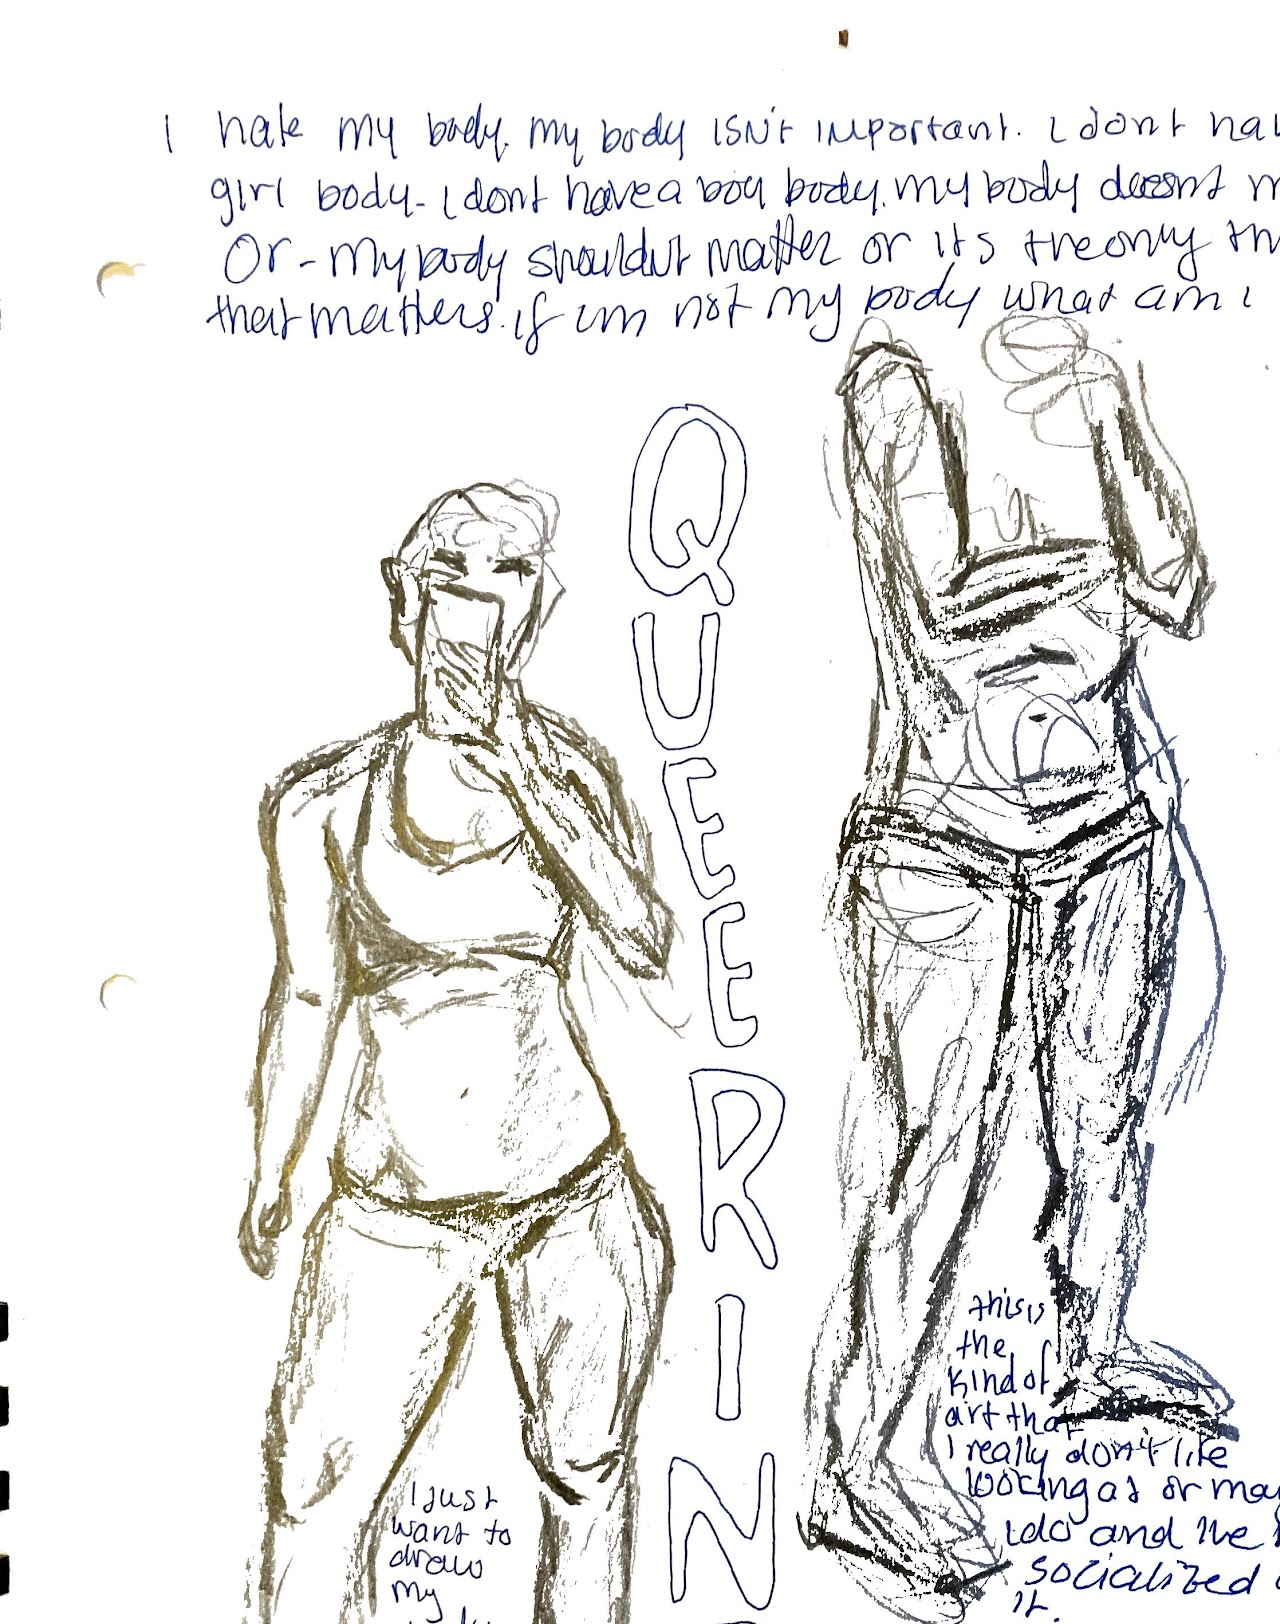 I hate my body. my body isn't important. I dont
girl body. I dont have a boy body. my body doesnt
Or - my body shouldnt matter or its the only
that matters. if im not my body what am i
QUEERIN
this is
the
kind of
art that
I really don't like
looking at or
I do and I've
socialized
it.
I just
want to
draw
my